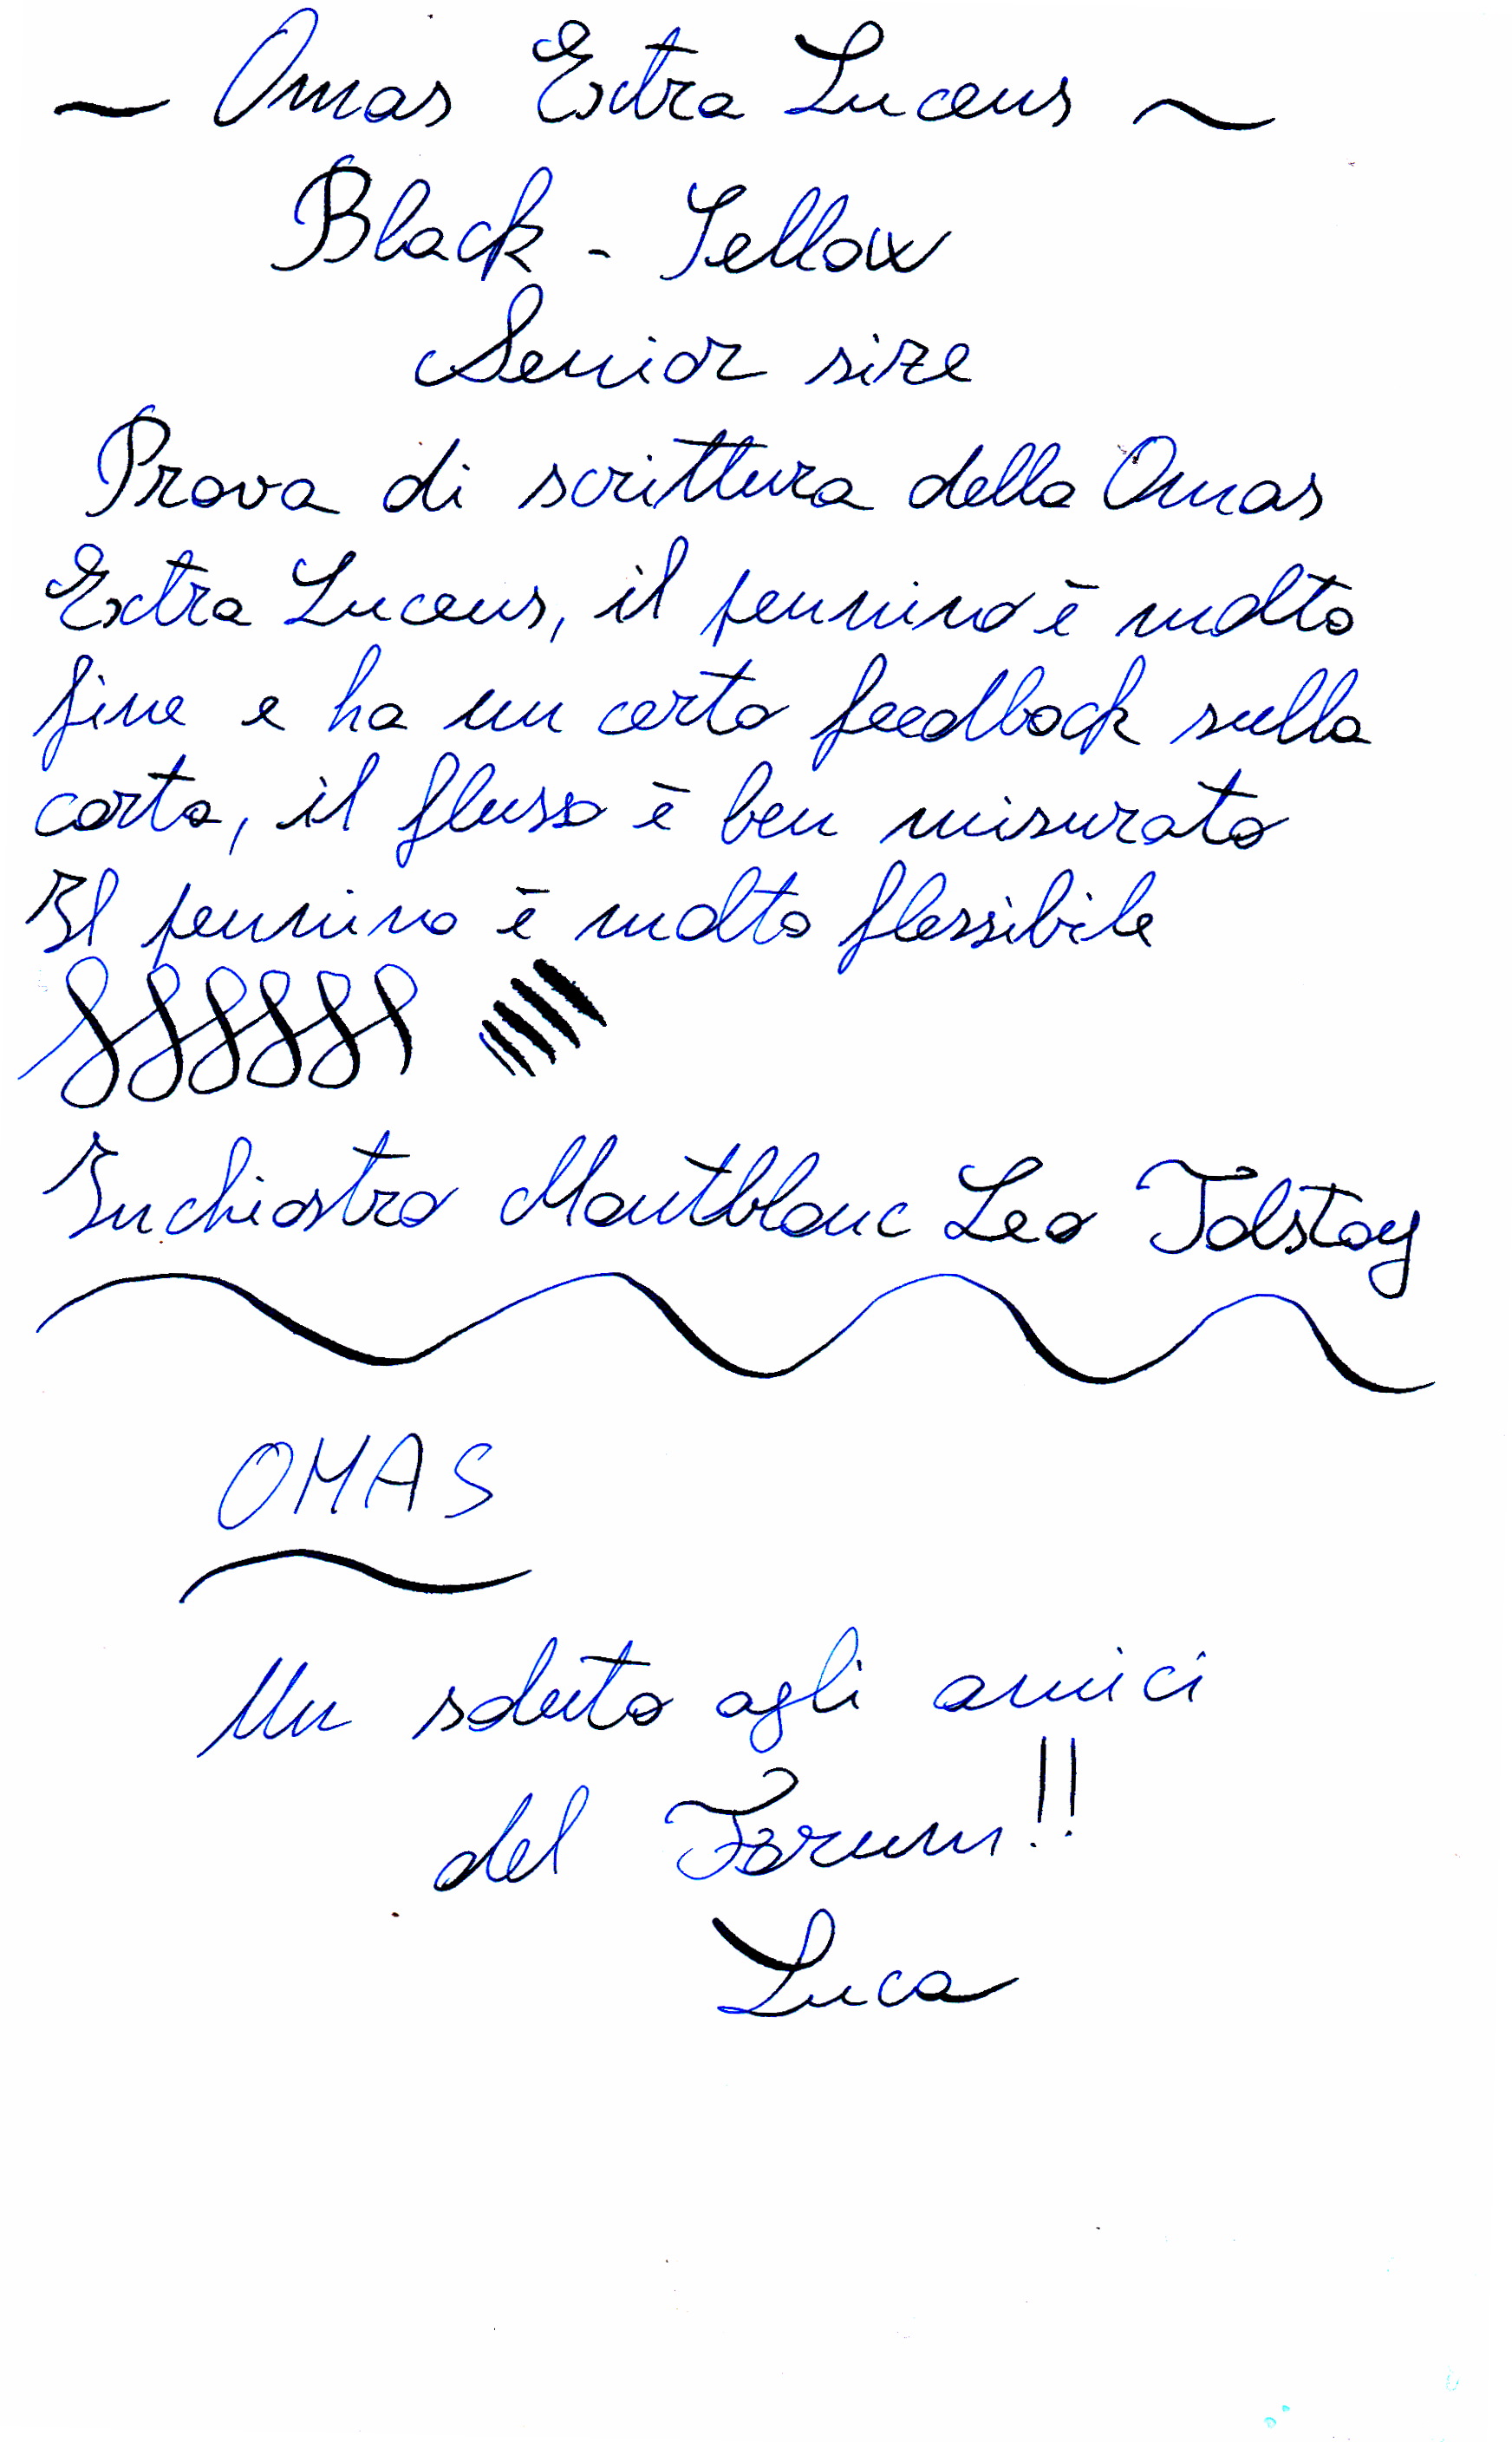 ~ Omas Extra Lucens ~
Black - Yellow
Senior size
Prova di scrittura della Omas
Extra Lucens, il pennino è molto
fine e ha un certo feedback sulla
carta, il flusso è ben misurato
Il pennino è molto flessibile
Inchiostro Montblanc Leo Tolstoy
OMAS
Un saluto agli amici
del Forum!!
Luca